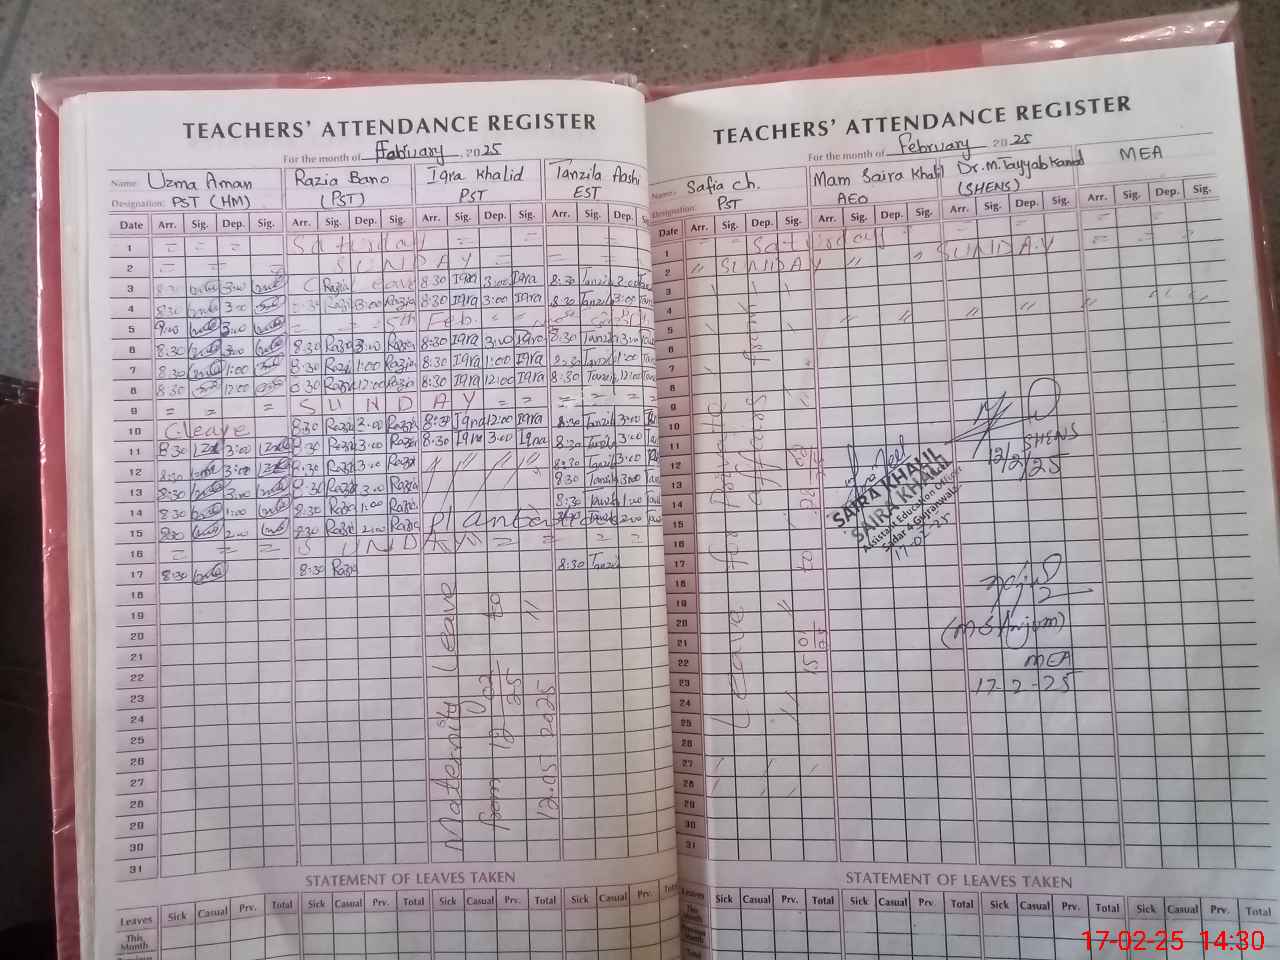 TEACHERS' ATTENDANCE REGISTER
For the month of February 2025
Name: Uzma Aman Razia Bano Iqra Khalid Tanzila Aashi
Designation: PST (HM) (PST) PST EST
Date Arr. Sig. Dep. Sig. Arr. Sig. Dep. Sig. Arr. Sig. Dep. Sig. Arr. Sig. Dep.
1 = = = Saturday = = =
2 = = = SUNDAY = = =
3 8:30 3:00 C Leave 8:30 Iqra 3:00 Iqra 8:30 Tanzila 3:00
4 8:30 3:00 8:30 Razia 3:00 Razia 8:30 Iqra 3:00 Iqra 8:30 Tanzila 3:00
5 9:00 3:00 5th Feb.
6 8:30 3:00 8:30 Razia 3:00 Razia 8:30 Iqra 3:00 Iqra 8:30 Tanzila 3:00
7 8:30 1:00 8:30 Razia 1:00 Razia 8:30 Iqra 1:00 Iqra 8:30 Tanzila 1:00
8 8:30 12:00 8:30 Razia 12:00 Razia 8:30 Iqra 12:00 Iqra 8:30 Tanzila 12:00
9 = = = SUNDAY = = =
10 C leave 8:30 Razia 3:00 Razia 8:30 Iqra 12:00 Iqra 8:30 Tanzila 3:00
11 8:30 3:00 8:30 Razia 3:00 Razia 8:30 Iqra 3:00 Iqra 8:30 Tanzila 3:00
12 8:30 3:00 8:30 Razia 3:00 Razia 8:30 Tanzila 3:00
13 8:30 3:00 8:30 Razia 3:00 Razia 8:30 Tanzila 3:00
14 8:30 1:00 8:30 Razia 1:00 Razia 8:30 1:00
15 8:30 2:00 8:30 Razia 2:00 Razia 2:00
16 = = = SUNDAY = = =
17 8:30 8:30 Razia 8:30 Tanzila
18
19
20
21
22
23
24
25
26
27
28
29
30
31
Maternity Leave
from 12 02 25 to
12.05 2025 "
STATEMENT OF LEAVES TAKEN
Leaves Sick Casual Prv. Total Sick Casual Prv. Total Sick Casual Prv. Total Sick Casual Prv.
This Month
TEACHERS' ATTENDANCE REGISTER
For the month of February 2025
Name: Safia ch. Mam Saira Khalil Dr.M.Tayyab Kamal MEA
Designation: PST AEO (SHENS)
Date Arr. Sig. Dep. Sig. Arr. Sig. Dep. Sig. Arr. Sig. Dep. Sig. Arr. Sig. Dep. Sig.
1 = = Saturday = = = =
2 " SUNDAY " " SUNDAY = = =
3
4
5
6
7
8
9
10
11
12
13
14
15
16
17
18
19
20
21
22
23
24
25
26
27
28
29
30
31
Leave for private affairs from
SHENS
12/2/25
SAIRA KHALIL
SAIRA KHALIL
Assistant Education Officer
Sadar 4 Gujranwala
17-02-25
(M S Anjum)
MEA
17-2-25
STATEMENT OF LEAVES TAKEN
Leaves Sick Casual Prv. Total Sick Casual Prv. Total Sick Casual Prv. Total Sick Casual Prv. Total
This Month
17-02-25 14:30